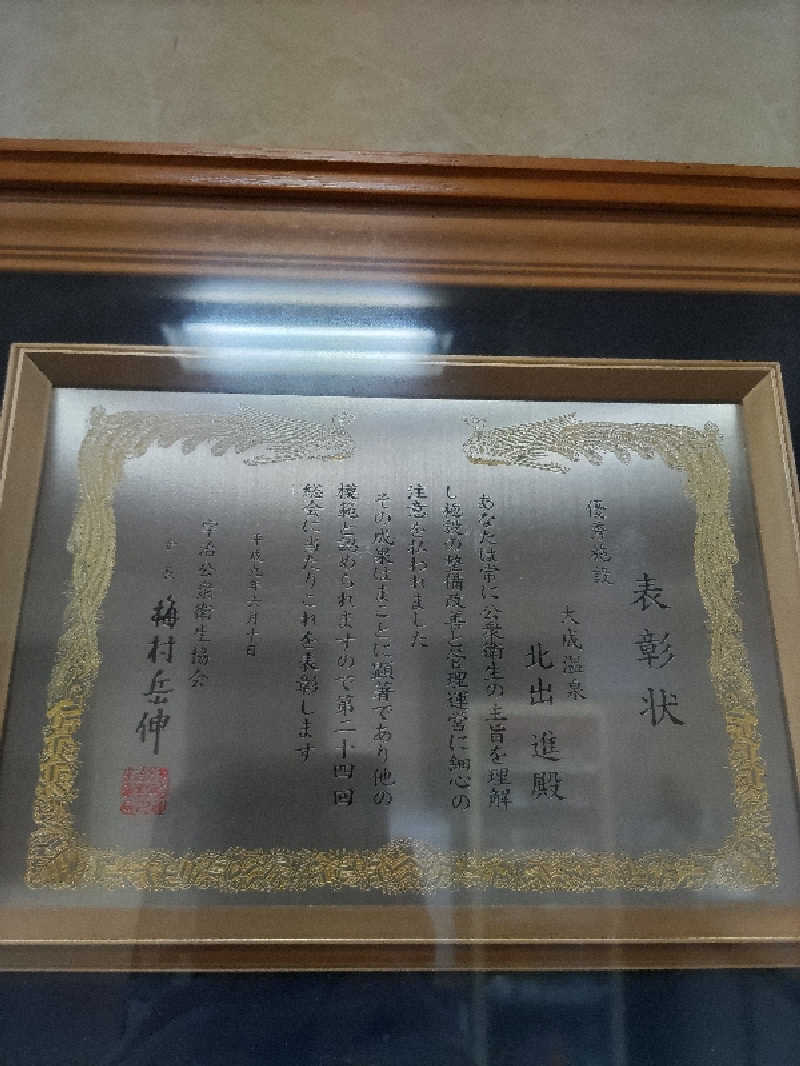 表彰状
優秀施設
大成温泉
北出進殿
あなたは常に公衆衛生の主旨を理解
し施設の整備改善と管理運営に細心の
注意を払われました
その成果はまことに顕著であり他の
模範と認められますので第二十四回
総会に当たりこれを表彰します
平成 年六月十日
宇治公衆衛生協会
会長 梅村岳伸